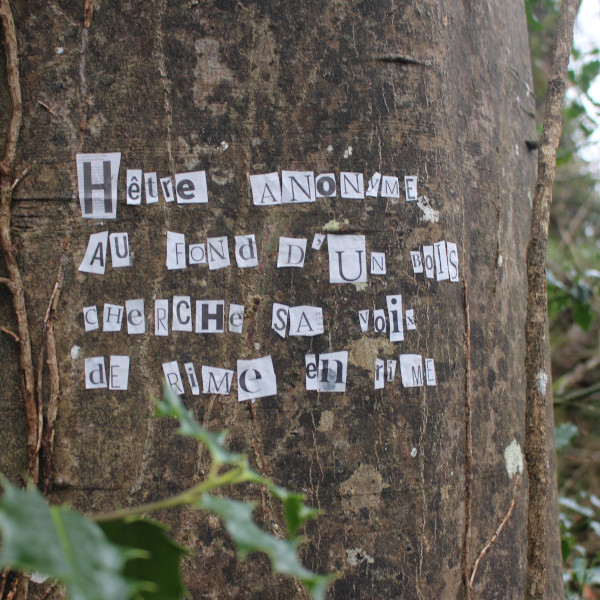 Hêtre ANONYME
AU FOND D'UN BOIS
CHERCHe SA VOIX
dE RIMe en rIME